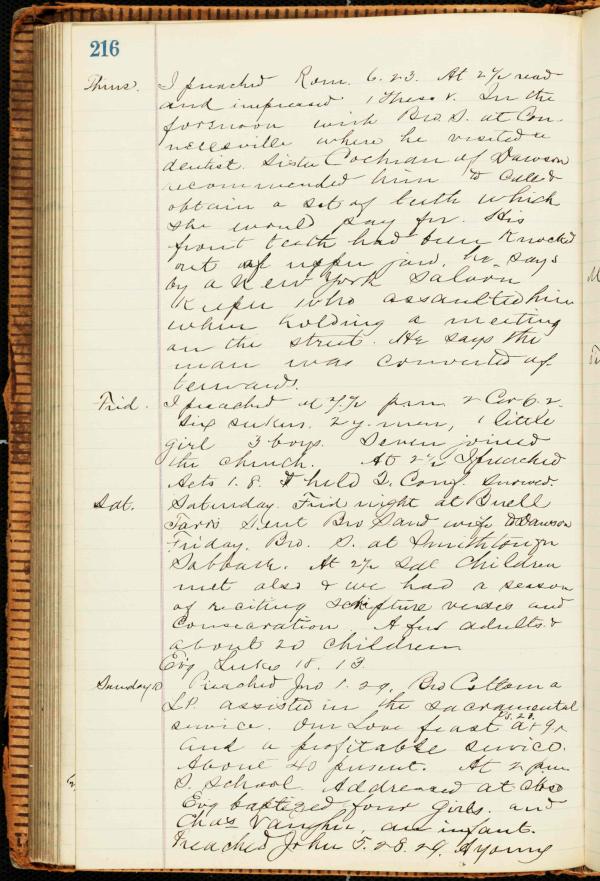 216
Thurs. I preached Rom. 6.23. At 2 1/2 read
and impressed 1 Thess V. In the
forenoon with Bro. S. at Con-
nellsville where he visited a
dentist. Sister Cochran of Dawson
recommended him to call &
obtain a set of teeth which
she would pay for. His
front teeth had been knocked
out of upper jaw, he says
by a New York Saloon
Keeper who assaulted him
when holding a meeting
on the street. He says the
man was converted af-
terwards.
Frid. I preached at 7 1/2 p.m. 2 Cor 6.2.
Six seekers. 2 y. men, 1 little
girl 3 boys. Seven joined
the church. At 2 1/2 I preached
Acts 1.8. & held Q. Conf.
Sat. Saturday. Frid night at Buell
Tarr's. Sent Bro S and wife to Dawson
Friday. Bro. S. at Smithton
Sabbath. At 2 1/2 Sat children
met also & we had a season
of reciting scripture verses and
Consecration. A few adults &
about 20 children
Evg Luke 18.13
Sunday Preached Jno 1.29. Bro Cottom a
L.P. assisted in the sacramental
service. Our Love feast at 9 1/2
and a profitable service.
About 40 present. At 2 p.m.
S. School. Addressed at
Evg baptized four girls. and
Chas Vaughn, an infant.
Preached John 5.28.29. A young